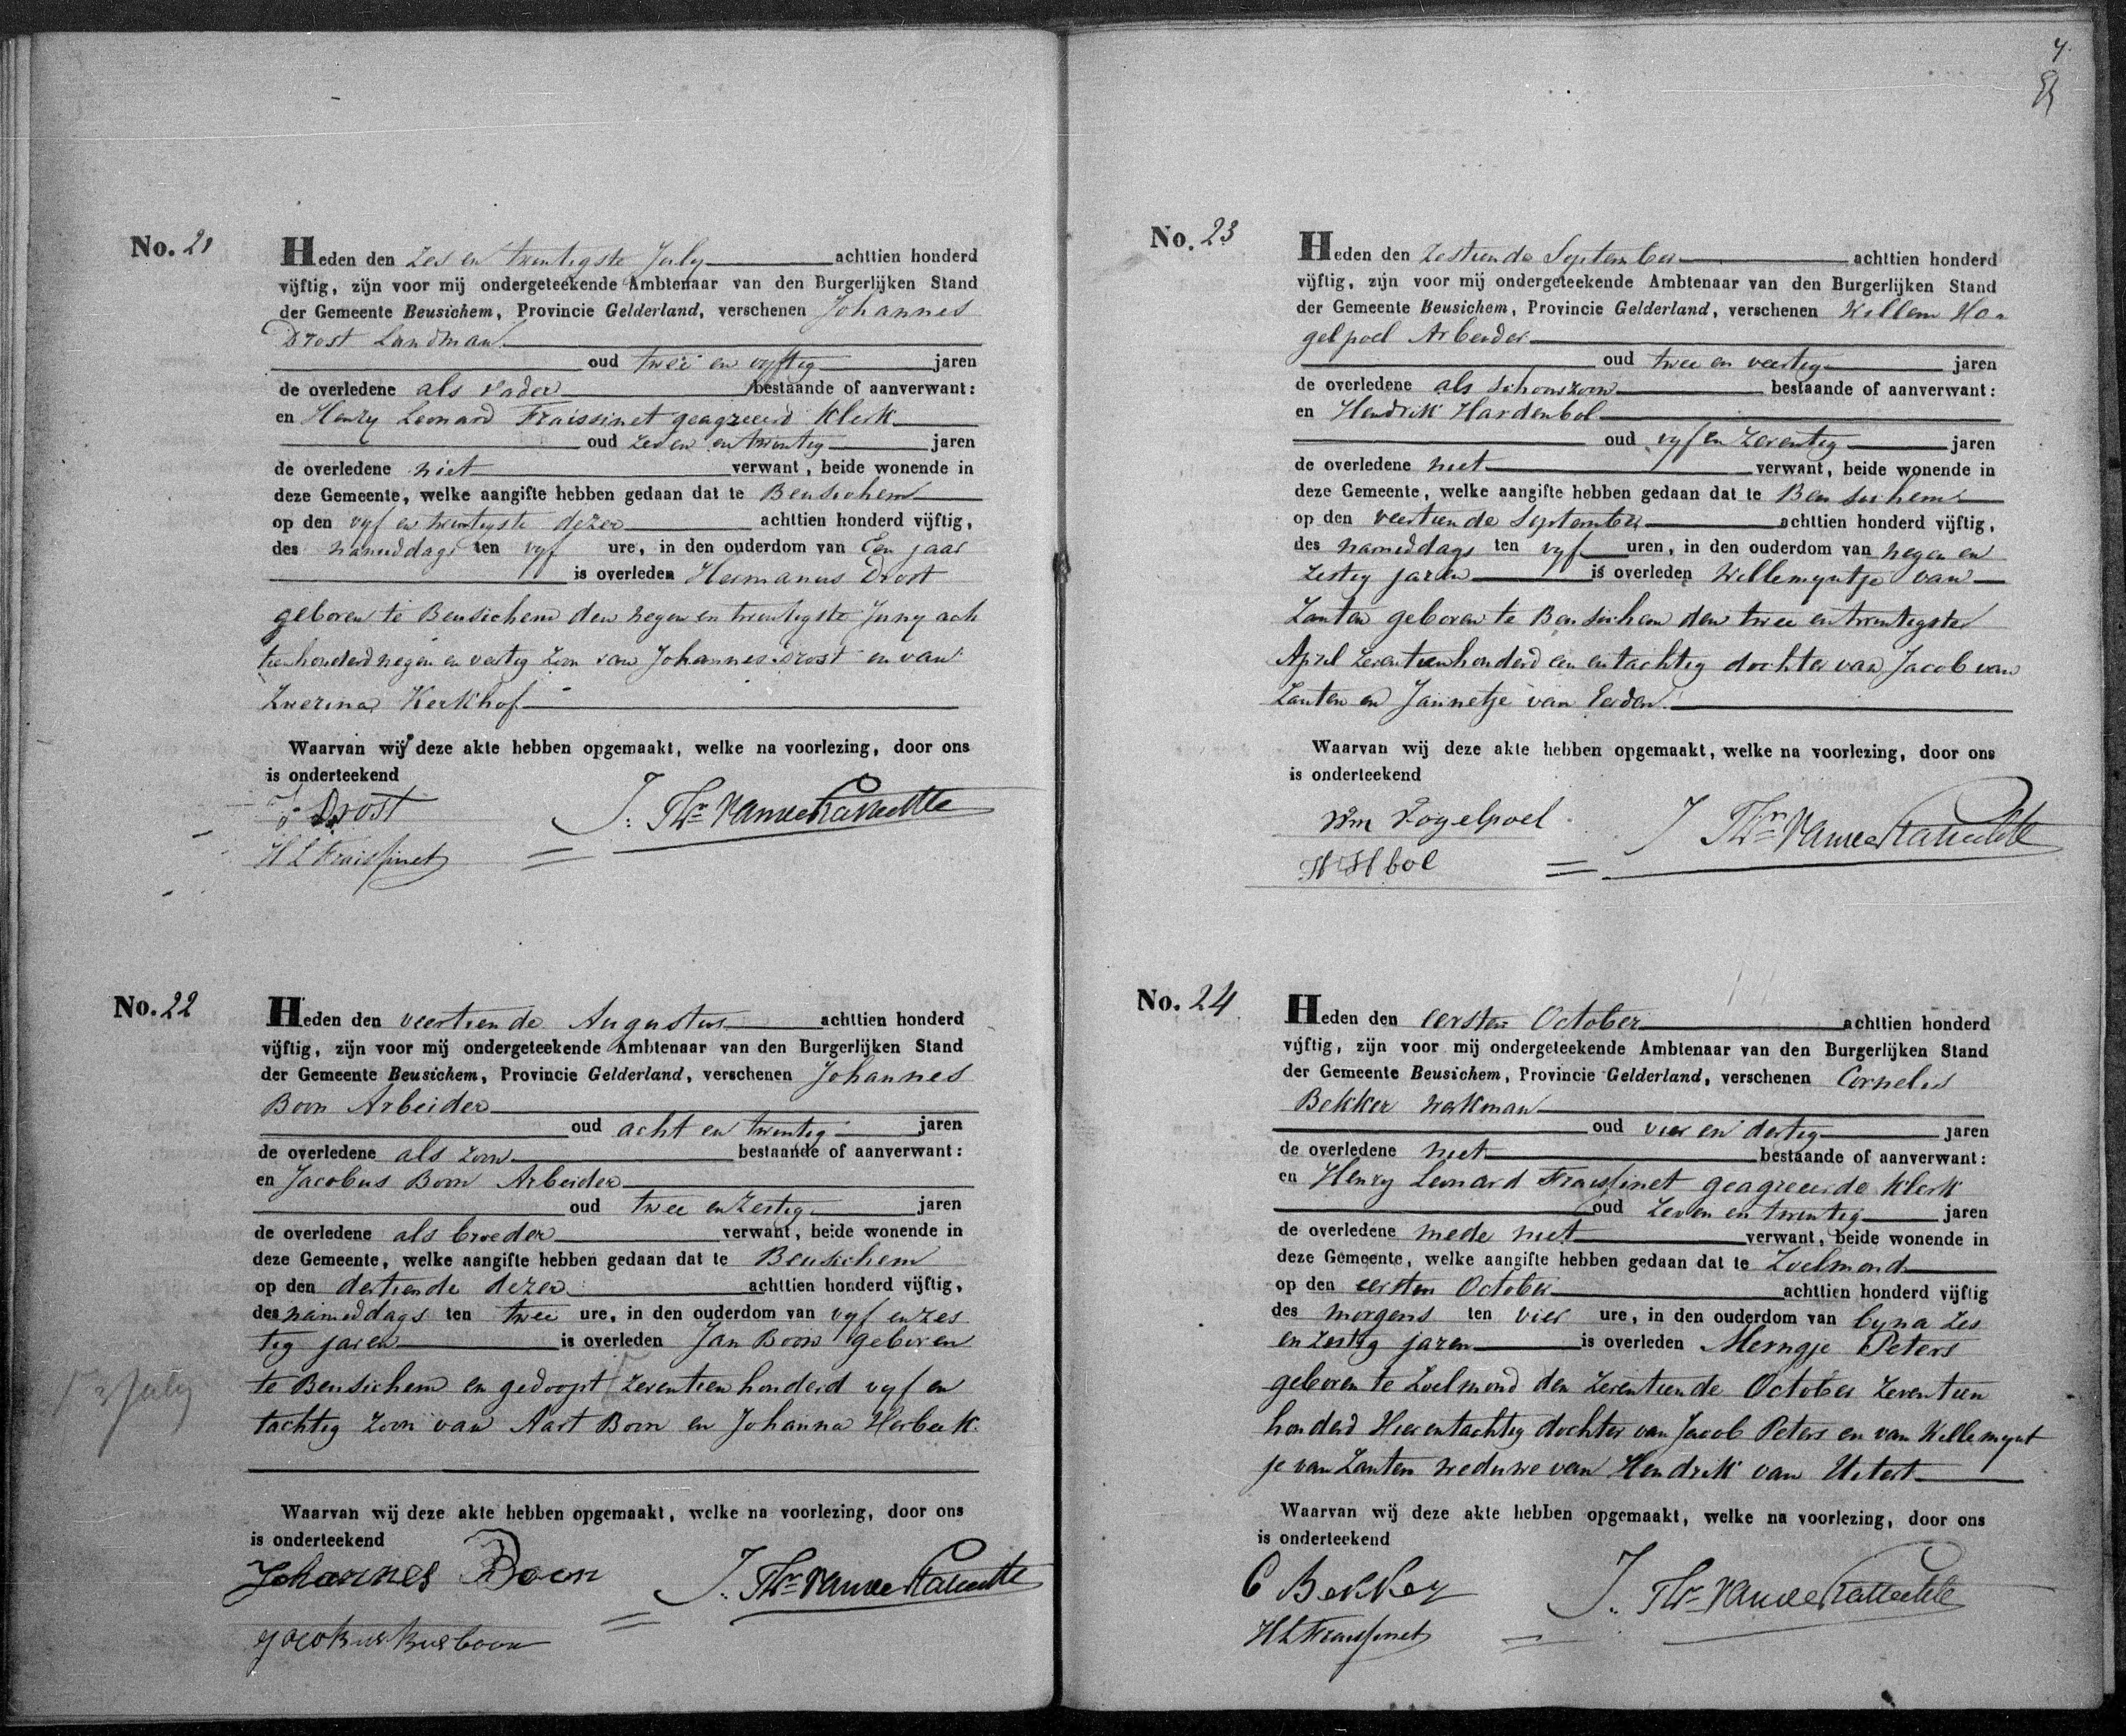 No. 21
Heden den zes en twintigste July achttien honderd
vijftig, zijn voor mij ondergeteekende Ambtenaar van den Burgerlijken Stand
der Gemeente Beusichem, Provincie Gelderland, verschenen Johannes
Drost Landman
oud twee en vyftig jaren
de overledene als vader bestaande of aanverwant:
en Henry Leonard Fraissinet geagreeerd Klerk
oud zeven en twintig jaren
de overledene niet verwant, beide wonende in
deze Gemeente, welke aangifte hebben gedaan dat te Beusichem
op den vyf en twintigste dezer achttien honderd vijftig,
des namiddags ten vyf ure, in den ouderdom van Een jaar
is overleden Hermanus Drost
geboren te Beusichem den negen en twintigste Juny ach
tienhonderd negen en veertig zoon van Johannes Drost en van
Zwerina Kerkhof
Waarvan wij deze akte hebben opgemaakt, welke na voorlezing, door ons
is onderteekend
J. Drost
H L Fraissinet
No. 22
Heden den veertiende Augustus achttien honderd
vijftig, zijn voor mij ondergeteekende Ambtenaar van den Burgerlijken Stand
der Gemeente Beusichem, Provincie Gelderland, verschenen Johannes
Boon Arbeider
oud acht en twintig jaren
de overledene als zoon bestaande of aanverwant:
en Jacobus Boon Arbeider
oud twee en zestig jaren
de overledene als broeder verwant, beide wonende in
deze Gemeente, welke aangifte hebben gedaan dat te Beusichem
op den dertiende dezer achttien honderd vijftig,
des namiddags ten twee ure, in den ouderdom van vyf en zes
tig jaren is overleden Jan Boon geboren
te Beusichem en gedoopt zeventien honderd vyf en
tachtig zoon van Aart Boon en Johanna Herbeek.
July
Waarvan wij deze akte hebben opgemaakt, welke na voorlezing, door ons
is onderteekend
Johannes Boon
No. 23
Heden den zestiende September achttien honderd
vijftig, zijn voor mij ondergeteekende Ambtenaar van den Burgerlijken Stand
der Gemeente Beusichem, Provincie Gelderland, verschenen Willem Ho
gelpoel Arbeider
oud twee en veertig jaren
de overledene als schoonzoon bestaande of aanverwant:
en Hendrik Hardenbol
oud vyf en zeventig jaren
de overledene niet verwant, beide wonende in
deze Gemeente, welke aangifte hebben gedaan dat te Beusichem
op den veertiende September achttien honderd vijftig,
des namiddags ten vyf uren, in den ouderdom van negen en
zestig jaren is overleden Willemyntje van
Zanten geboren te Beusichem den twee en twintigste
April zeventienhonderd een en tachtig dochter van Jacob van
Zanten en Jannetje van Eerden
Waarvan wij deze akte hebben opgemaakt, welke na voorlezing, door ons
is onderteekend
Wm Vogelpoel
H H bol
No. 24
Heden den eersten October achttien honderd
vijftig, zijn voor mij ondergeteekende Ambtenaar van den Burgerlijken Stand
der Gemeente Beusichem, Provincie Gelderland, verschenen Cornelis
Bekker werkman
oud vier en dertig jaren
de overledene niet bestaande of aanverwant:
en Henry Leonard Fraissinet geagreeerde Klerk
oud zeven en twintig jaren
de overledene mede niet verwant, beide wonende in
deze Gemeente, welke aangifte hebben gedaan dat te Zoelmond
op den eersten October achttien honderd vijftig
des morgens ten vier ure, in den ouderdom van byna zes
en zestig jaren is overleden Merngje Peters
geboren te Zoelmond den zeventiende October zeventien
honderd vier en tachtig dochter van Jacob Peters en van Willemynt
je van Zanten weduwe van Hendrik van Uitert
Waarvan wij deze akte hebben opgemaakt, welke na voorlezing, door ons
is onderteekend
C Bekker
H L Fraissinet